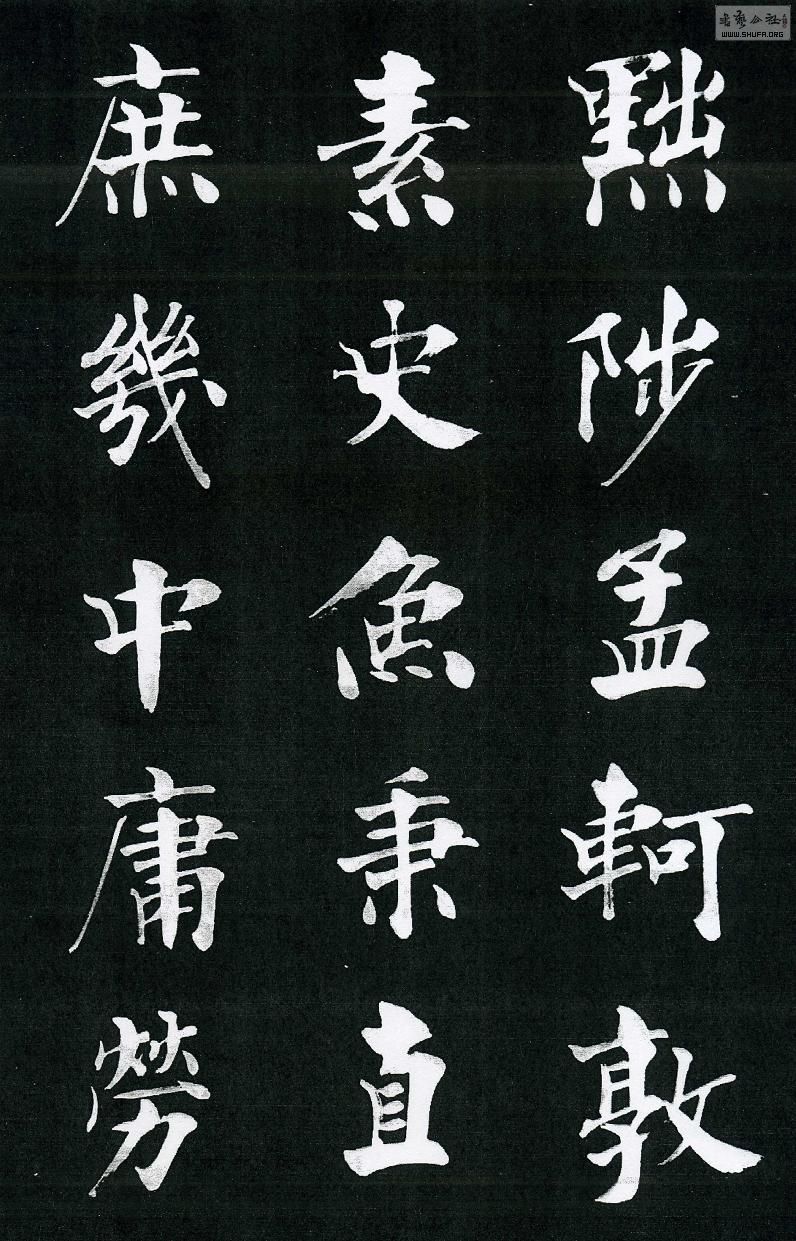 黜陟孟軻敦
素史魚秉直
庶幾中庸勞
書藝公社
WWW.SHUFA.ORG